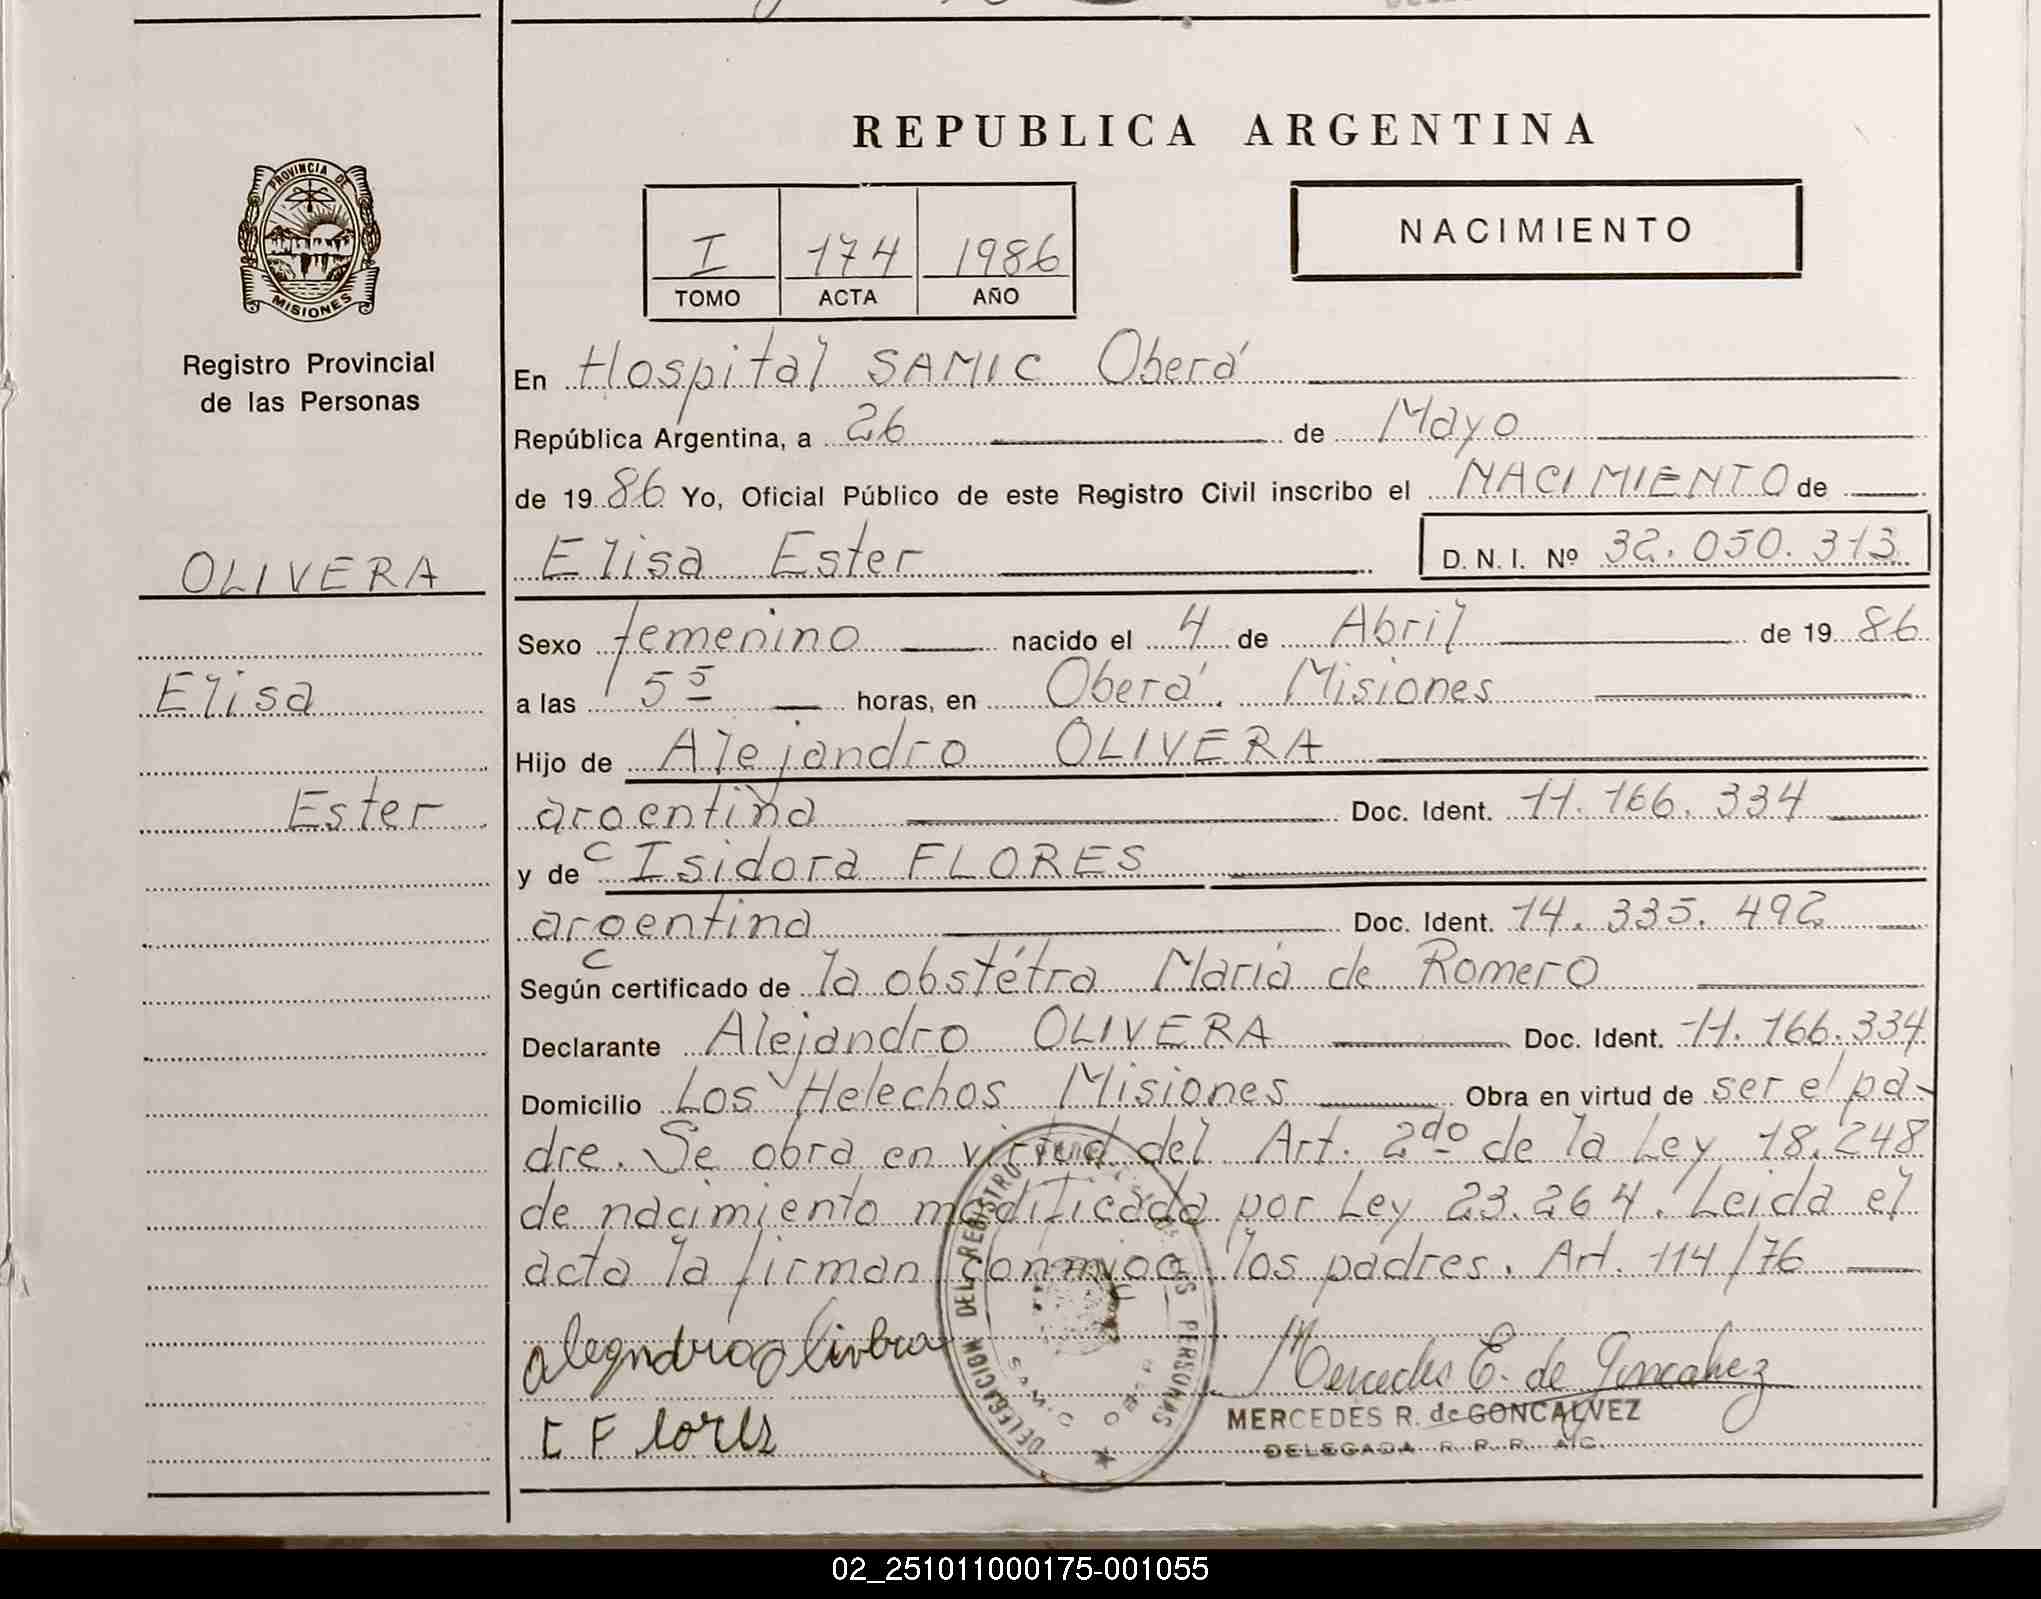 REPUBLICA ARGENTINA
PROVINCIA DE
MISIONES
Registro Provincial
de las Personas
I 174 1986
TOMO ACTA AÑO
NACIMIENTO
En Hospital SAMIC Oberá
República Argentina, a 26 de Mayo
de 1986 Yo, Oficial Público de este Registro Civil inscribo el NACIMIENTO de
OLIVERA
Elisa Ester D. N. I. Nº 32.050.313
Sexo femenino nacido el 4 de Abril de 1986
Elisa
a las 5 5 horas, en Oberá. Misiones
Hijo de Alejandro OLIVERA
Ester
argentina Doc. Ident. 11.166.334
y de Isidora FLORES
argentina Doc. Ident. 14.335.492
Según certificado de la obstétra María de Romero
Declarante Alejandro OLIVERA Doc. Ident. 11.166.334
Domicilio Los Helechos Misiones Obra en virtud de ser el pa-
dre. Se obra en virtud del Art. 2do de la Ley 18.248
de nacimiento modificada por Ley 23.264. Leida el
acta la firman conmigo los padres. Art. 114/76
DELEGACION DEL REGISTRO PERSONAS
Mercedes de Goncalvez
I Flores
MERCEDES R. de GONCALVEZ
DELEGADA R. R. P.
02_251011000175-001055